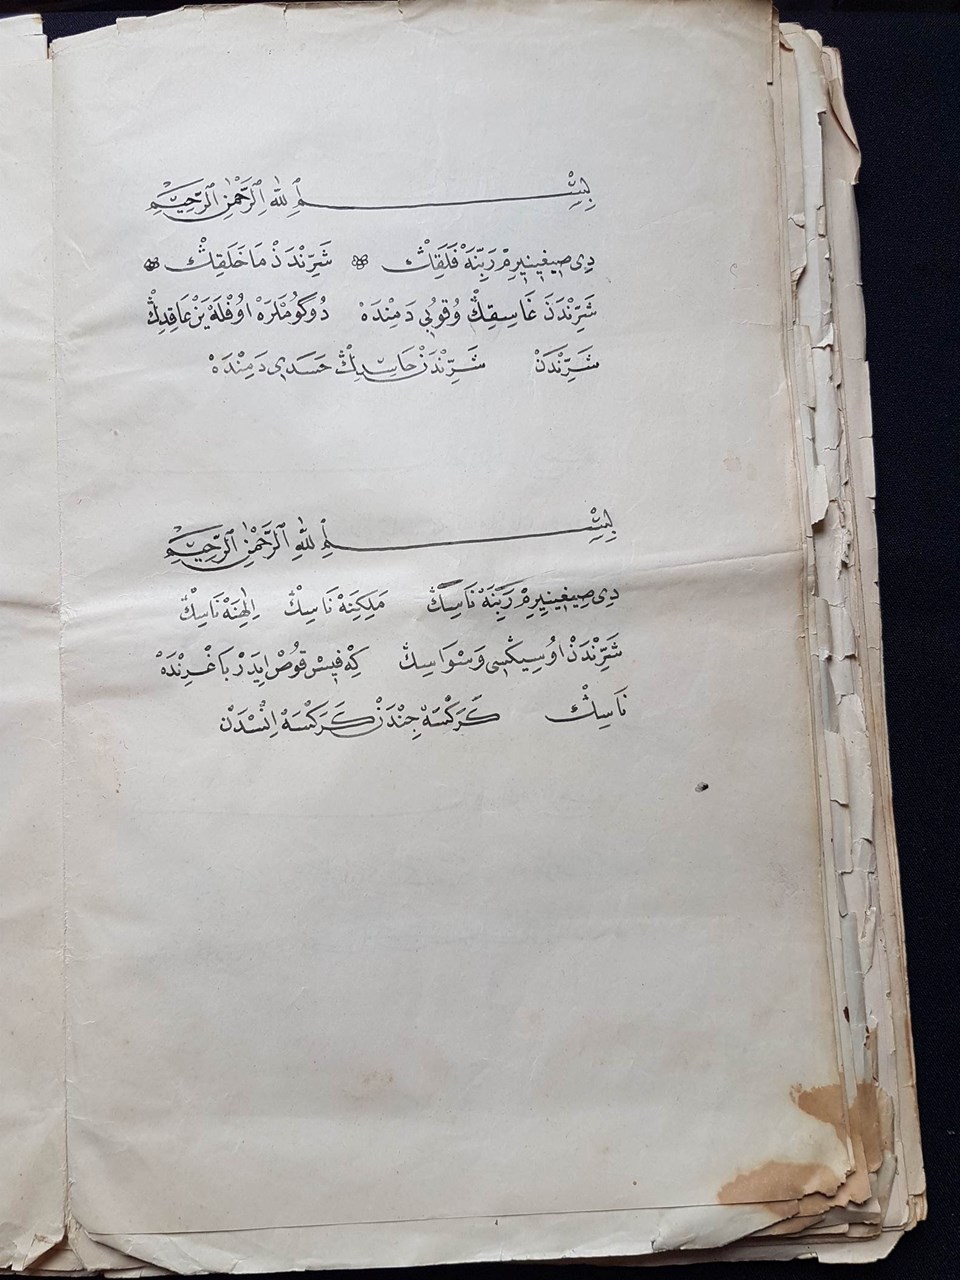 بِسْمِ اللّٰهِ الرَّحْمٰنِ الرَّحِيمِ
دِى صِيغِينِيرِمْ رَبِّنَهْ فَلَقِڭْ شَرِّنْدَنْ مَا خَلَقِڭْ
شَرِّنْدَنَ غَاسِقِڭْ وُقُوبِي دَمِنْدَهْ دُوڭُومْلَرَهْ اوُفْلَهْ يَنْ عَاقِدِڭْ
شَرِّنْدَنْ شَرِّنْدَنْ حَاسِدِڭْ حَسَدِى دَمِنْدَهْ
بِسْمِ اللّٰهِ الرَّحْمٰنِ الرَّحِيمِ
دِى صِيغِينِيرِمْ رَبِّنَهْ نَاسِڭْ مَلِكِنَهْ نَاسِڭْ اِلٰهِنَهْ نَاسِڭْ
شَرِّنْدَنْ اوُ سِيڭْسِى وَسْوَاسِڭْ كِهْ فِيسْ قُوصْ اِيدَرْ بَاغْرِنْدَهْ
نَاسِڭْ كَرَكْسَهْ جِنْدَنْ كَرَكْسَهْ اِنْسْدَنْ